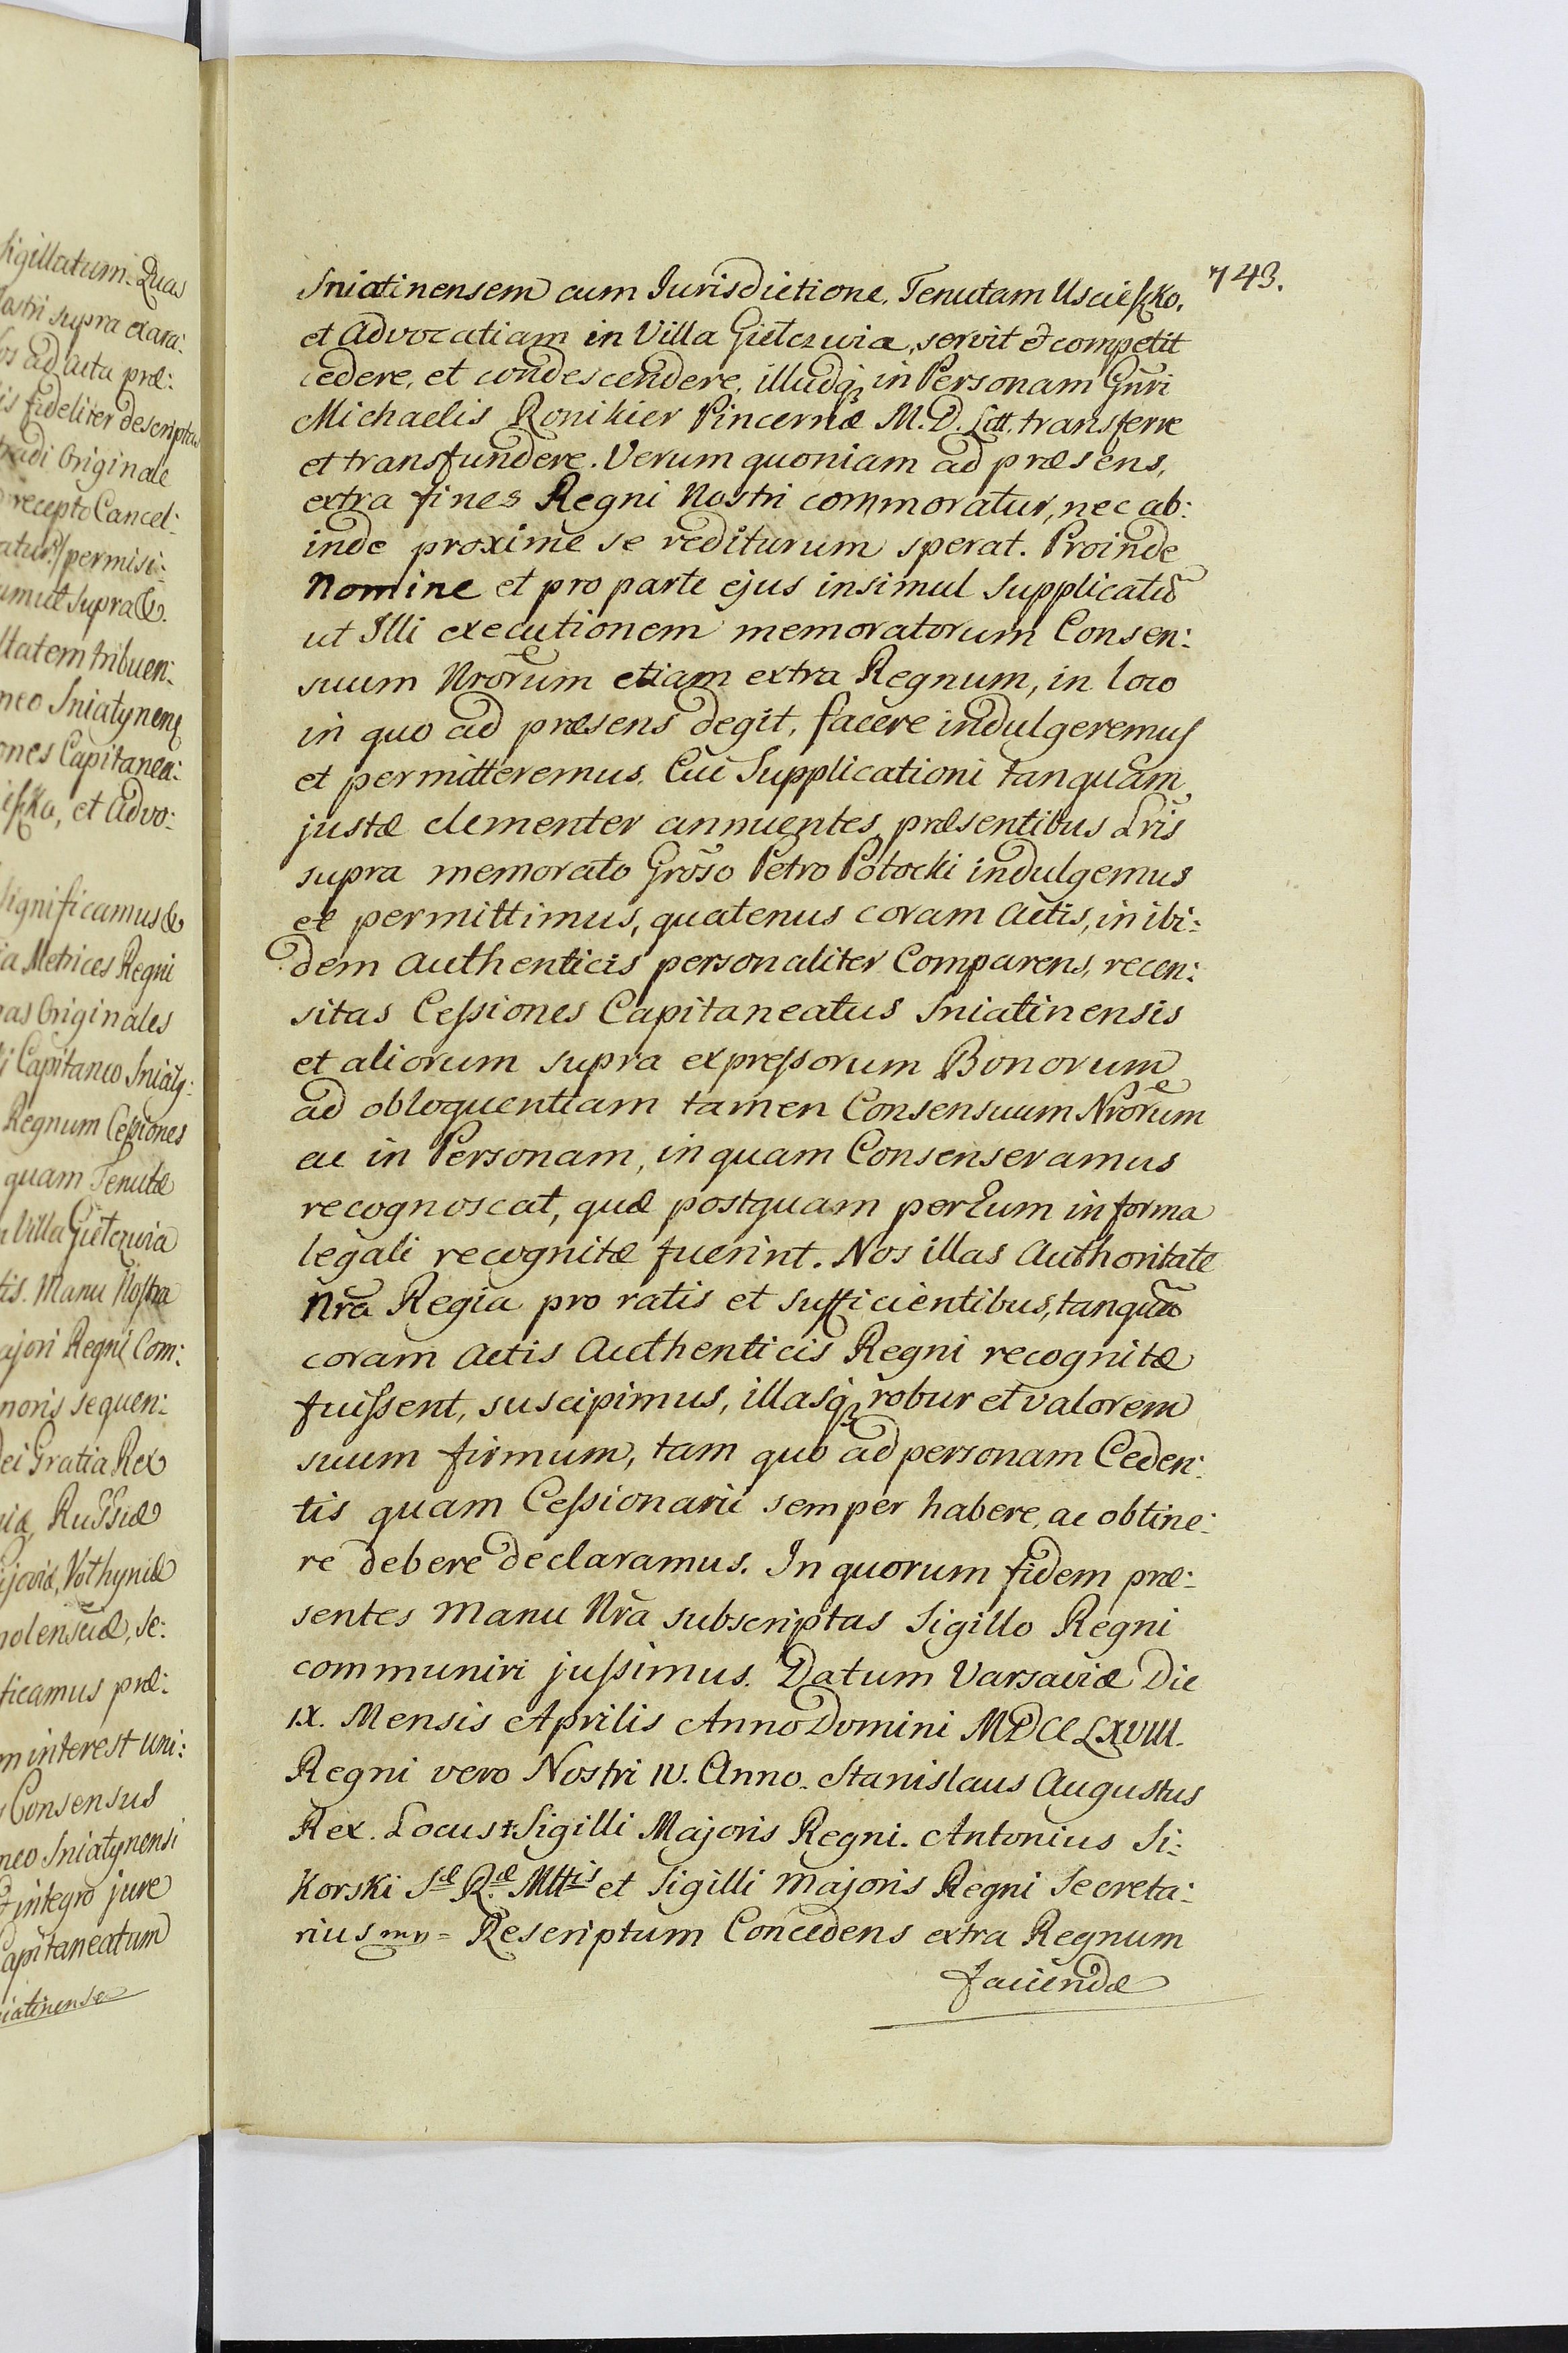 sigillatum. Quas
Nostri supra exara:
os ad Acta præ:
is fideliter descriptas
tradi Originale
recepto Cancel:
atur:/permisi:
umut supra &.
ltatem tribuen:
neo Sniatynens
ones Capitanea:
ieſzko, et Advo:
Significamus &
ia Metrices Regni
nas Originales
i Capitaneo Sniaty:
Regnum Ceſsiones
quam Tenutæ
Villa Giełczwia
tis. Manu Nostra
ajori Regni Com:
noris sequen:
Dei Gratia Rex
niæ, Russiæ
ijoviæ, Volhyniæ
nolensciæ, Se:
ficamus præ:
m interest uni:
Consensus
neo Sniatynensi
& integro jure
Capitaneatum
niatinense
743.
Sniatinensem cum Iurisdictione, Tenutam Uscieſzko,
et Advocatiam in Villa Giełczwia, servit & competit
cedere, et condescendere, illudq; in Personam Gnri
Michaelis Ronikier Pincernæ M. D. Litt. transferre
et transfundere. Verum quoniam ad præsens,
extra fines Regni Nostri commoratur, nec ab:
inde proxime se rediturum sperat. Proinde
Nomine et pro parte ejus insimul Supplicatũ
ut Illi executionem memoratorum Consen:
suum Nrorum etiam extra Regnum, in loco
in quo ad præsens degit, facere indulgeremus
et permitteremus. Cui Supplicationi tanquam
justæ clementer annuentes, præsentibus Lris
supra memorato Groso Petro Potocki indulgemus
et permittimus, quatenus coram Actis, in ibi:
dem Authenticis personaliter Comparens, recen:
sitas Ceſsiones Capitaneatus Sniatinensis
et aliorum supra expreſsorum Bonorum
ad obloquentiam tamen Consensuum Nrorum
ac in Personam, in quam Consenseramus
recognoscat, quæ postquam per Eum in forma
legali recognitæ fuerint. Nos illas Authoritate
Nra Regia pro ratis et sufficientibus, tanquã
coram Actis Authenticis Regni recognitæ
fuiſsent, suscipimus, illasq; robur et valorem
suum firmum, tam quo ad personam Ceden:
tis quam Ceſsionarii semper habere, ac obtine:
re debere declaramus. In quorum fidem præ:
sentes Manu Nra subscriptas Sigillo Regni
communiri juſsimus. Datum Varsaviæ Die
IX. Mensis Aprilis Anno Domini MDCCLXVIII.
Regni vero Nostri IV. Anno. Stanislaus Augustus
Rex. Locus ‡ Sigilli Majoris Regni. Antonius Si:
korski Sæ Ræ. Mttis et Sigilli Majoris Regni Secreta:
rius mp = Rescriptum Concedens extra Regnum
faciendæ